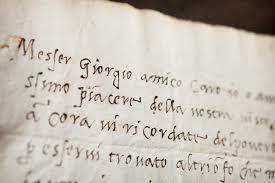 Messer Giorgio amico Caro
ssimo piacere della vostra
ācora vi ricordate del povero
e esservi trovato al triōfo che